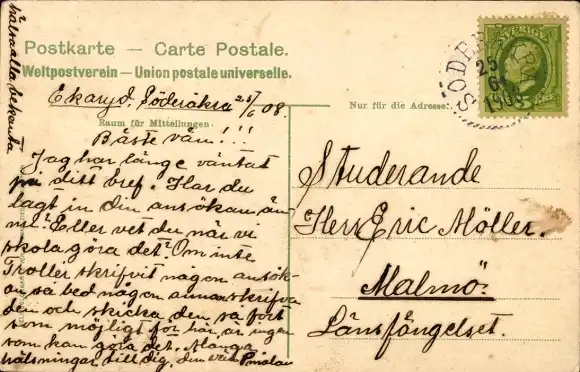 hälsa alla bekanta
Postkarte — Carte Postale.
Weltpostverein — Union postale universelle.
Ekaryd. Söderåkra 25/6 08.
Raum für Mitteilungen.
Nur für die Adresse.
SVERIGE
SÖDERÅKRA
25
6
1908
5
Bäste vän!!!
Jag har länge väntat
på ditt bref. Har du
lagt in din ansökan än
nu? Eller vet du när vi
skola göra det? Om inte
Troller skrifvit någon ansök-
an så bed någon annan skrifva
den och skicka den så fort
som möjligt för här är ingen
som kan göra det. Många
hälsningar till dig, din vän
Studerande
Herr Eric Möller.
Malmö.
Länsfängelset.